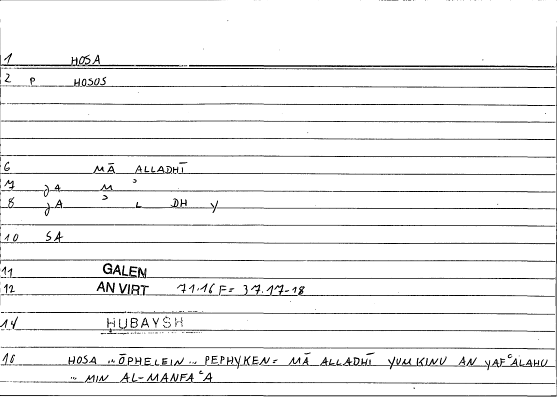 1 HOSA
2 P HOSOS
6 MĀ ALLADHĪ
7 JA M ʾ
8 JA ʾ L DH Y
10 SA
11 GALEN
12 AN VIRT 71.16 F = 37.17-18
14 HUBAYSH
16 HOSA .. ŌPHELEIN .. PEPHYKEN = MĀ ALLADHĪ YUMKINU AN YAFʿALAHU
.. MIN AL-MANFAʿA